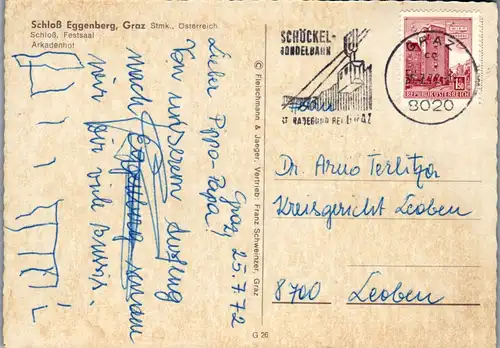 Schloß Eggenberg, Graz Stmk., Österreich
Schloß, Festsaal
Arkadenhof
© Fleischmann & Jaeger, Vertrieb: Franz Schweinzer, Graz
G 26
SCHÖCKEL-
GONDELBAHN
ST. RADEGUND BEI GRAZ
GRAZ
8020
REPUBLIK ÖSTERREICH
Graz, 25.7.72
Lieber Papa!
Von unserem Ausflug
nach Eggenberg senden
wir Dir viele Bussis.
Dr. Arno Terlitza
Kreisgericht Leoben
8700 Leoben